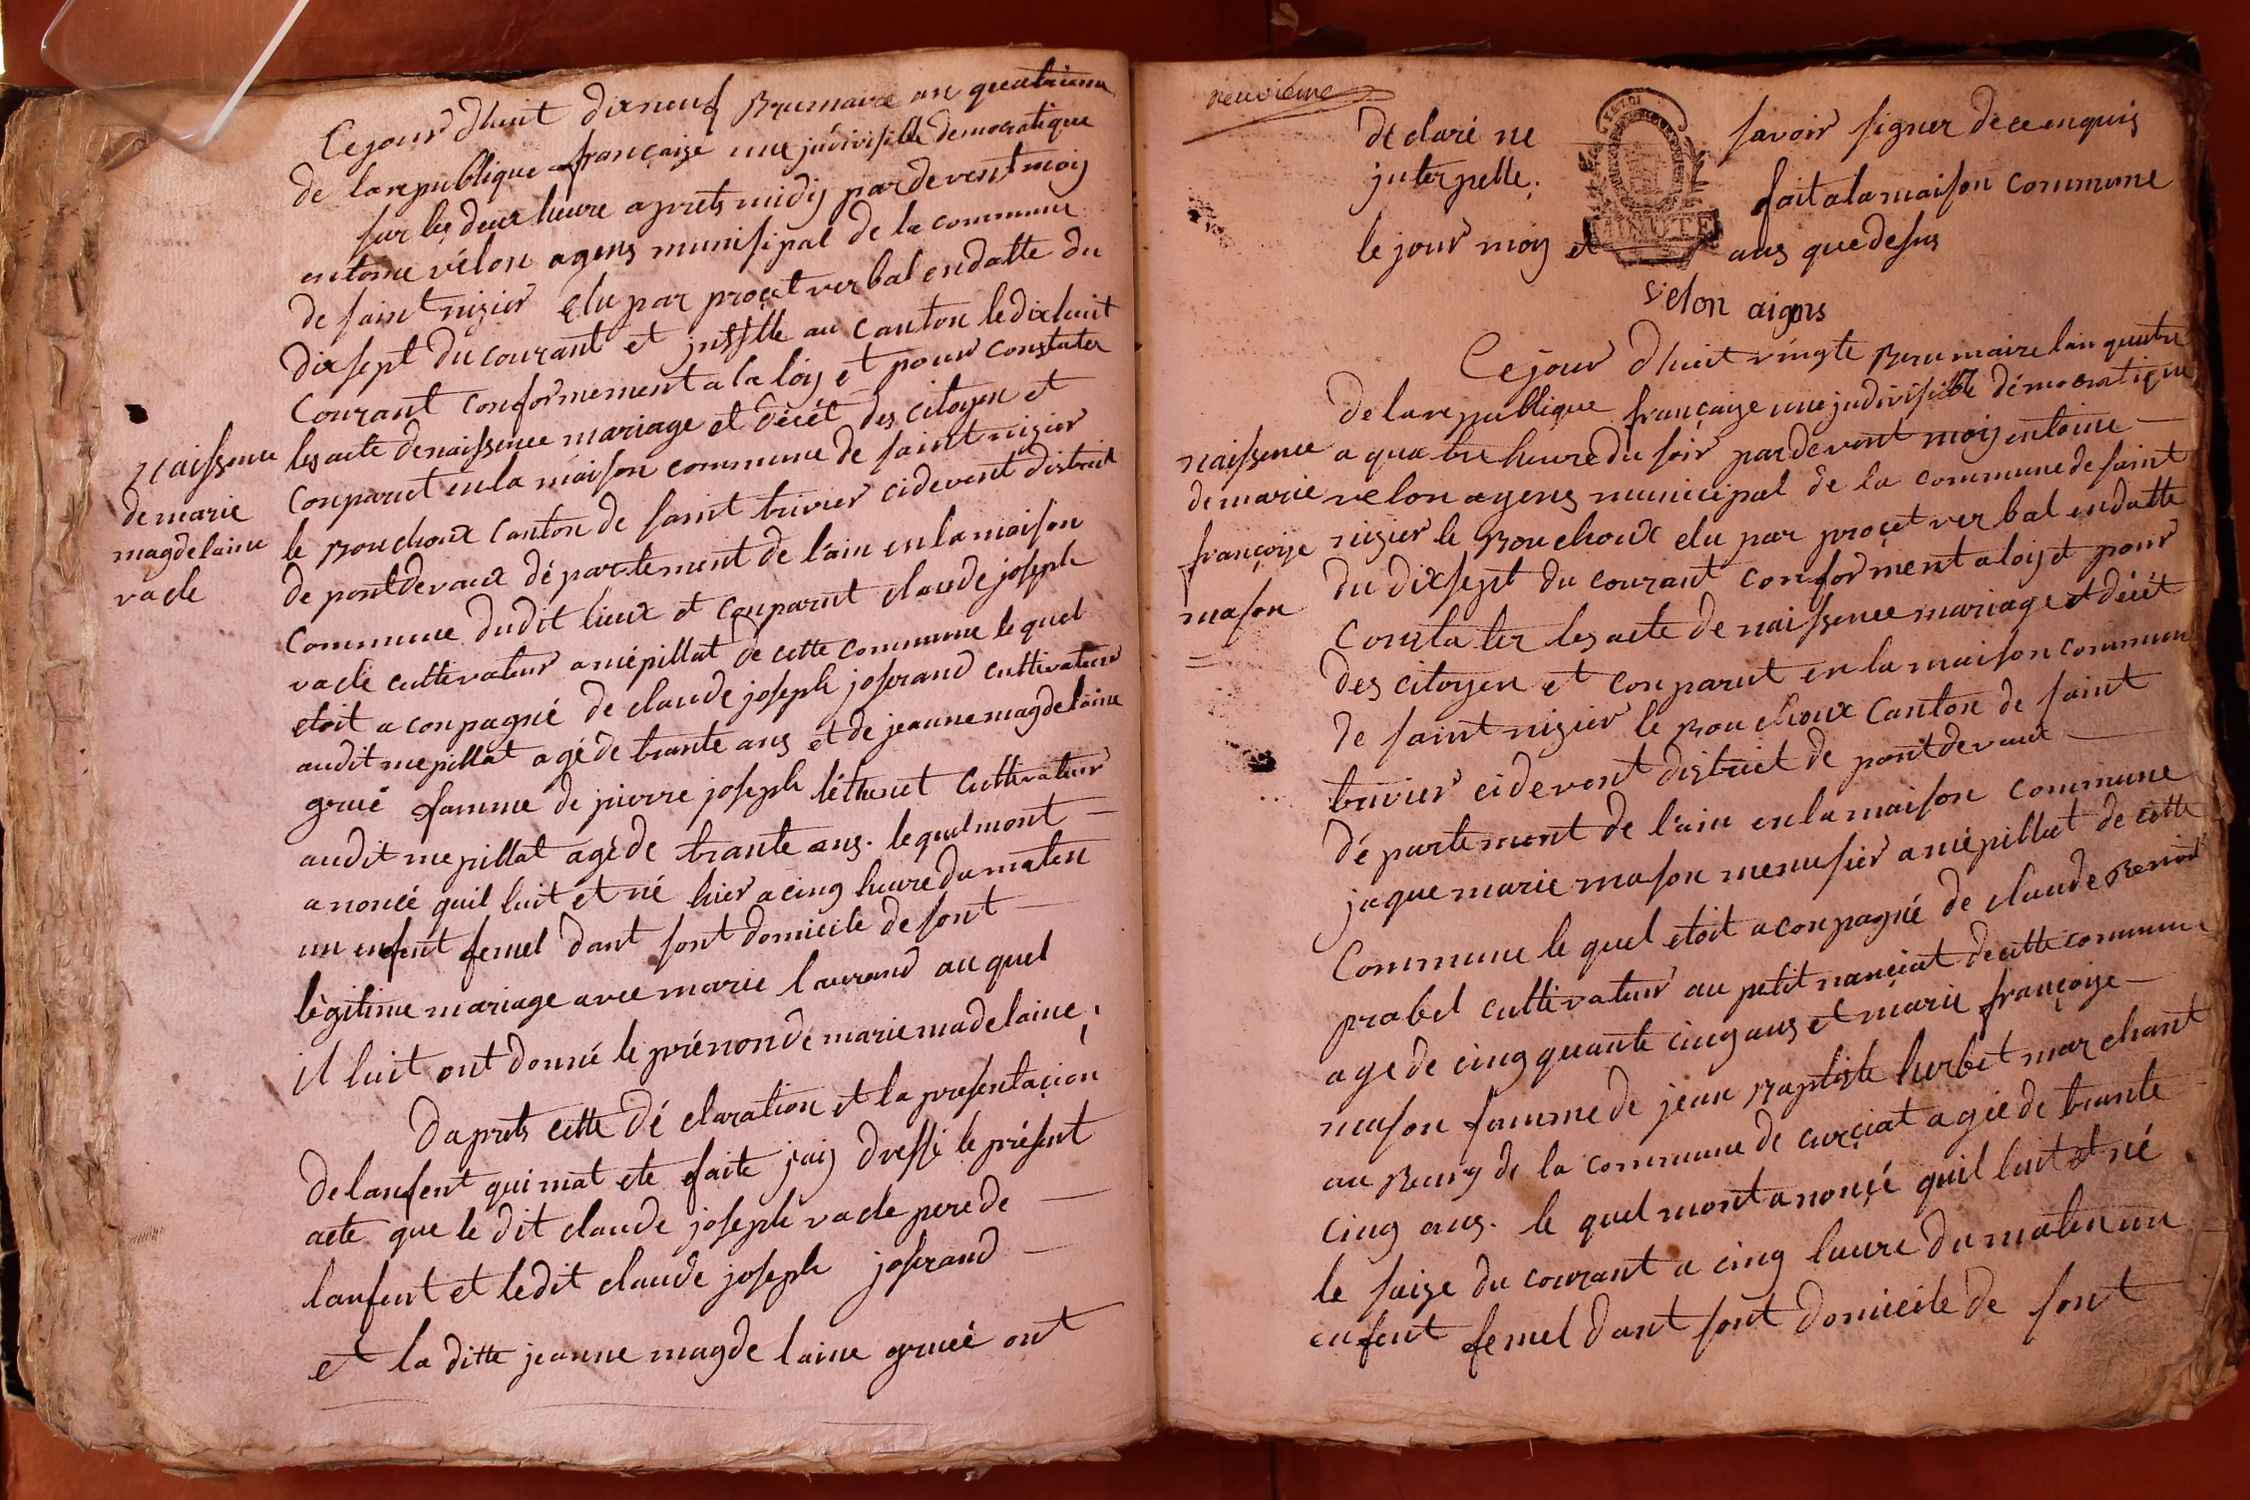 Cejour dhuit dixneuf Brumaire an quatrieme
de larepublique françaize une jndivisible democratique
sur les deux heure aprets midij pardevent moij
entoine vélon agens munisipal de la commune
de saint nizier elu par proçet verbal endatte du
dixsept du courant et justille au canton le dixhuit
Courant conformement a la loij et pour constater
les acte denaissence mariage et décét des citoyen et
Conparut enla maison commune de saint nizier
le Bouchoux canton de saint trivier cidevent district
de pontdevaux département de l'ain enla maison
Commune dudit lieux et conparut claude joseph
vacle cultevateur a mépillat de cette commune le quel
etoit aconpagné de claude joseph joserand cultivateur
audit mepillat agé de trante ans et de jeanne magdelaine
grué famme de pierre joseph léthenet cultivateur
audit mepillat agé de trante ans. lequel mont
anoncé quil luit et né hier a cinq heure du maten
un enfent femel dant sont domicile de sont
lègitime mariage avec marie laurand au quel
il luit ont donné le prénon de marie madelaine.
Daprets cette dé claration et la presentaçion
delanfent qui mat ete faite jaij dressé le présent
acte que le dit claude joseph vacle pere de
lanfent et ledit claude joseph joserand
et la ditte jeanne magdelaine grueé ont
Naissence
de marie
magdelaine
vacle
neuviéme
déclaré ne savoir signer de ce enquis
jnterpelle. fait a la maison commune
MINUTE
le jour moij et ans que desus
velon aigens
Cejour dhuit vingte Brumaire lan quatre
de larepublique françaize une jndivisible démocratique
a quatre heure du soir pardevent moij entoine
velon agens municipal de la commune de saint
nizier le Bouchoux elu par proçet verbal endatte
du dixsept du courant conforment a loij et pour
Constater les acte de naissence mariage et décét
des citoyen et conparut en la maison commune
de saint nizier le Bouchoux canton de saint
trivier cidevent district de pontdevaux
département de l'ain enla maison commune
jaque marie mason menusier a mépillat de cette
Commune le quel etoit aconpagné de claude Benoit
prabel cultivateur au petit nançiat decette commune
age de cinq quante cinq ans et marie françoize
mason famme de jean Baptiste herbet marchant
au Bourg de la commune de curçiat agée de trante
cinq ans. le quel mont anonçé quil luit et né
le saize du courant a cinq heure du maten un
enfent femel dant sont domicile de sont
naissence
de marie
françoize
mason